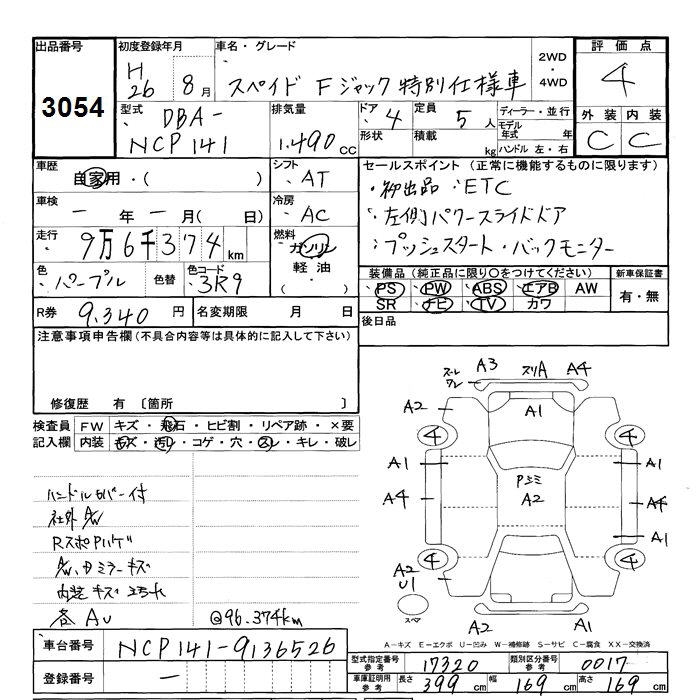 出品番号 初度登録年月 車名・グレード 2WD・4WD 評価点
3054 H26 8月 スペイド Fジャック 特別仕様車 4
型式 DBA-NCP141 排気量 1.490cc ドア 4 形状 定員 5人 積載 kg ディーラー・並行 モデル年式 年 ハンドル 左・右 外装 C 内装 C
車歴 自家用・( ) シフト AT セールスポイント (正常に機能するものに限ります)
・初出品 ・ETC
車検 ー年ー月( 日) 冷房 AC ・左側パワースライドドア
走行 9万6千374km 燃料 ガソリン 軽油・( ) ・プッシュスタート・バックモニター
色 パープル 色替 色コード 3R9 装備品 (純正品に限り○をつけてください) 新車保証書
PS PW ABS エアB AW 有・無
SR ナビ TV カワ
R券 9.340円 名変期限 月 日 後日品
注意事項申告欄 (不具合内容等は具体的に記入して下さい)
修復歴 有 〔箇所 〕
検査員記入欄 FW キズ・飛石・ヒビ割・リペア跡・×要
内装 キズ・汚レ・コゲ・穴・スレ・キレ・破レ
ハンドルカバー付
社外A/W
内装キズ
各AU @96.374km
A3 スリA A4
A2 A1
4 4
A1 A1
A4 A2 A4
A1
4 4
A2
U1
スペア
A2 A1
A-キズ E-エクボ U-凹み W-補修跡 S-サビ C-腐食 XX-交換済
車台番号 NCP141-9136526
登録番号 ー
型式指定番号 参考 17320 類別区分番号 参考 0017
車庫証明用 参考 長さ 399cm 幅 169cm 高さ 169cm